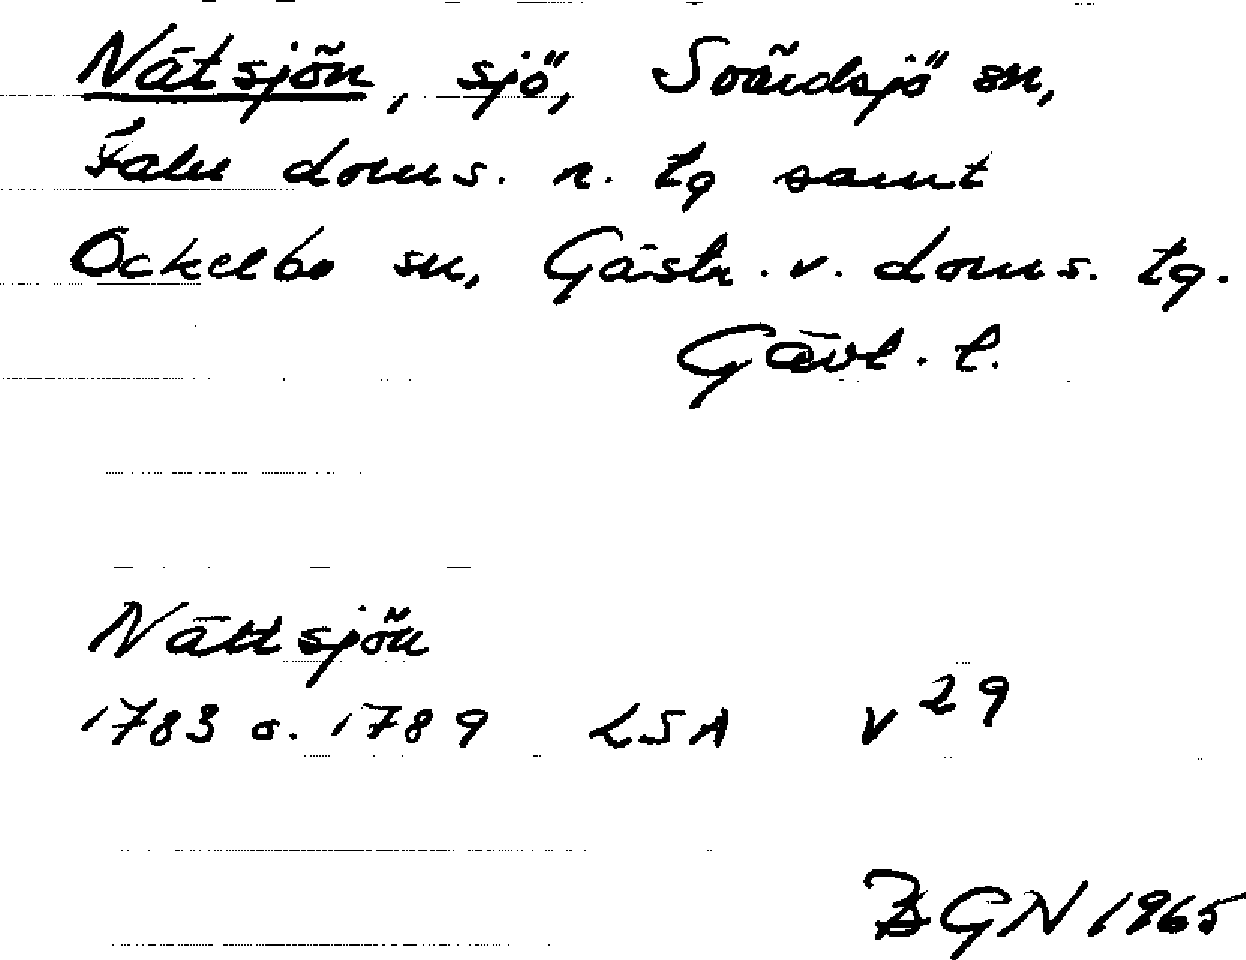 Nätsjön, sjö, Svärdsjö sn,
Falu doms. n. tg samt
Ockelbo sn, Gästr. v. doms. tg.
Gävl. l.
Nättsjön
1783 o. 1789 LSA V 29
GN 1965